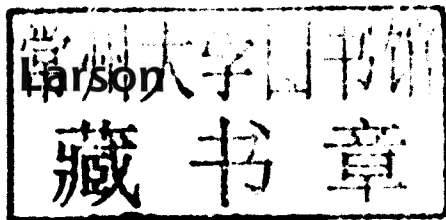 常州大学图书馆
Larson
藏书章